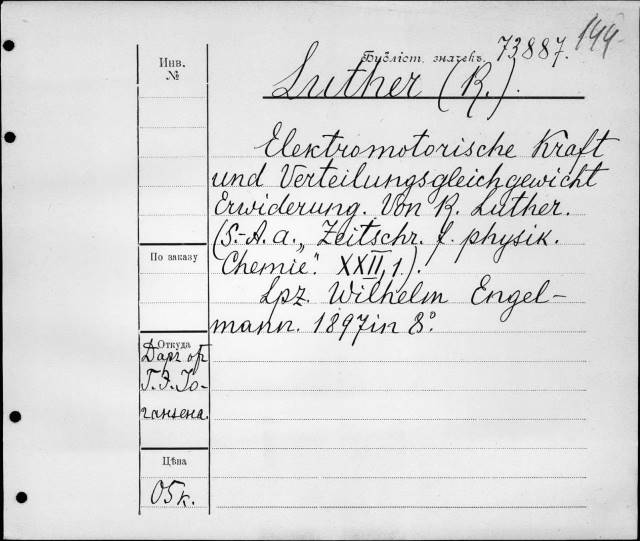 144
Бубліот. значекъ. 73887.
Инв.
№
Luther (R.).
Elektromotorische Kraft
und Verteilungsgleichgewicht
Erwiderung. Von R. Luther.
(S.-A. a. „Zeitschr. f. physik.
Chemie“. XXII, 1.).
Lpz. Wilhelm Engel-
mann. 1897 in 8°.
По заказу
Откуда
Даръ отъ
Г. Э. Іо-
гансена.
Цѣна
05 к.